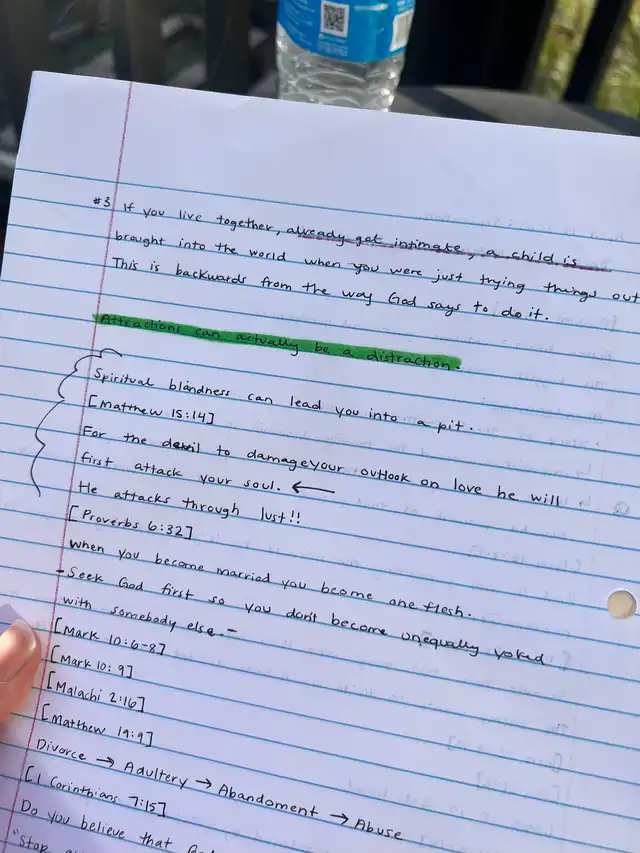 #3 If you live together, already got intimate, a child is
brought into the world when you were just trying things out
This is backwards from the way God says to do it.
Attractions can actually be a distraction.
Spiritual blindness can lead you into a pit.
[Matthew 15:14]
For the devil to damage your outlook on love he will
first attack your soul. ←
He attacks through lust!!
[Proverbs 6:32]
When you become married you bcome one flesh.
-Seek God first so you don't become unequally yoked
with somebody else.-
[Mark 10:6-8]
[Mark 10:9]
[Malachi 2:16]
[Matthew 19:9]
Divorce → Adultery → Abandoment → Abuse
[1 Corinthians 7:15]
Do you believe that
"Stop